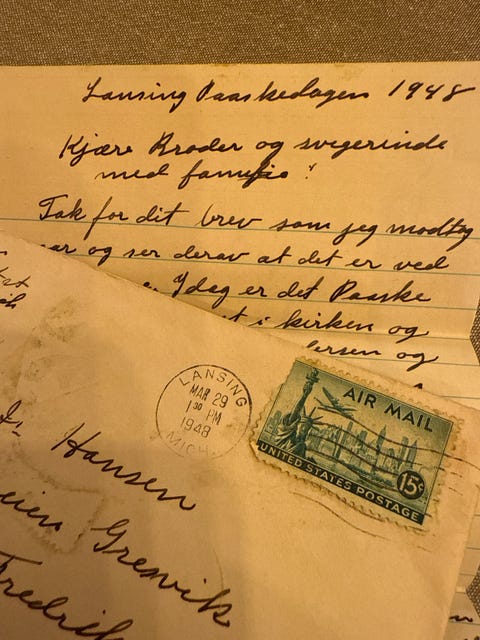 Lansing Paaskedagen 1948
Kjære Broder og svigerinde
med familie!
Tak for dit brev som jeg modtog
og ser derav at det er ved
Idag er det Paaske
i kirken og
og
LANSING
MAR 29
1 30 PM
1948
MICH.
AIR MAIL
UNITED STATES POSTAGE
15¢
Hansen
Gresvik
Fredrik